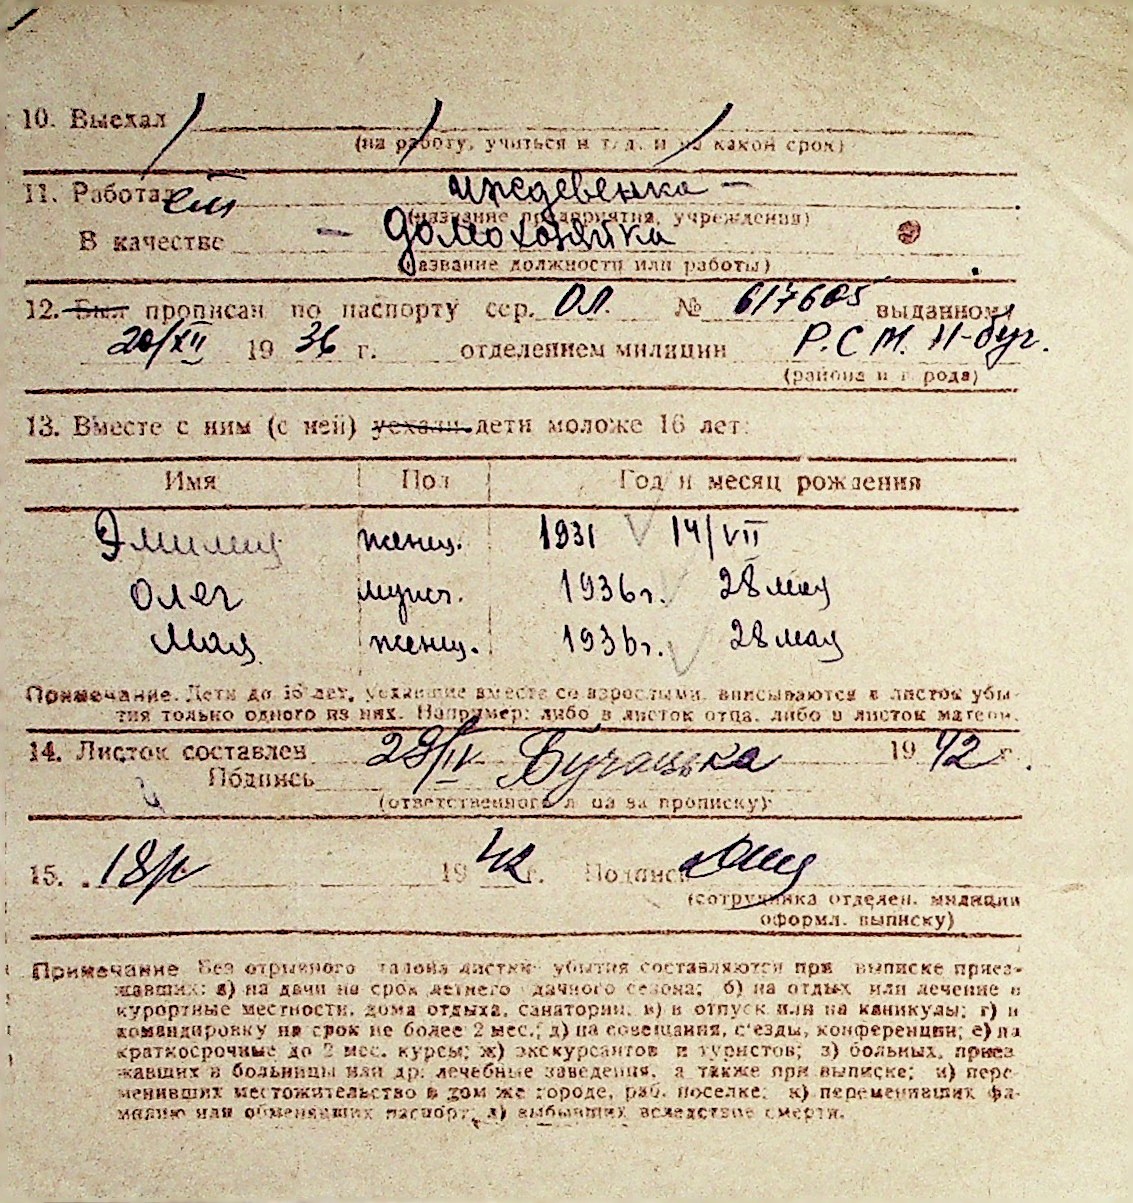 10. Выехал
(на работу, учиться и т. д. и на какой срок)
11. Работает иждевенка -
(название предприятия, учреждения)
В качестве - домохозяйка
(название должности или работы)
12. Был прописан по паспорту сер. ОЛ. № 617605 выданному
20/XII 1936 г. отделением милиции Р.С М. Н-буг.
(района и города)
13. Вместе с ним (с ней) уехали дети моложе 16 лет:
Имя Пол Год и месяц рождения
Эмилия женщ. 1931 14/VII
Олег мужч. 1936г. 28 мая
Мая женщ. 1936г. 28 мая
Примечание. Дети до 16 лет, уехавшие вместе со взрослыми, вписываются в листок убы-
тия только одного из них. Например: либо в листок отца, либо в листок матери.
14. Листок составлен 29/IV 1942 г.
Подпись
(ответственного лица за прописку)
15. 1942 г. Подпись
(сотрудника отделен. милиции
оформл. выписку)
Примечание Без отрывного талона листки убытия составляются при выписке приез-
жавших: а) на дачи на срок летнего дачного сезона; б) на отдых или лечение в
курортные местности, дома отдыха, санатории; в) в отпуск или на каникулы; г) в
командировку на срок не более 2 мес.; д) на совещания, с'езды, конференции; е) на
краткосрочные до 2 мес. курсы; ж) экскурсантов и туристов; з) больных, приез
жавших в больницы или др. лечебные заведения, а также при выписке; и) пере-
менивших местожительство в том же городе, раб. поселке; к) переменивших фа-
милию или обменявших паспорт; л) выбывших вследствие смерти.